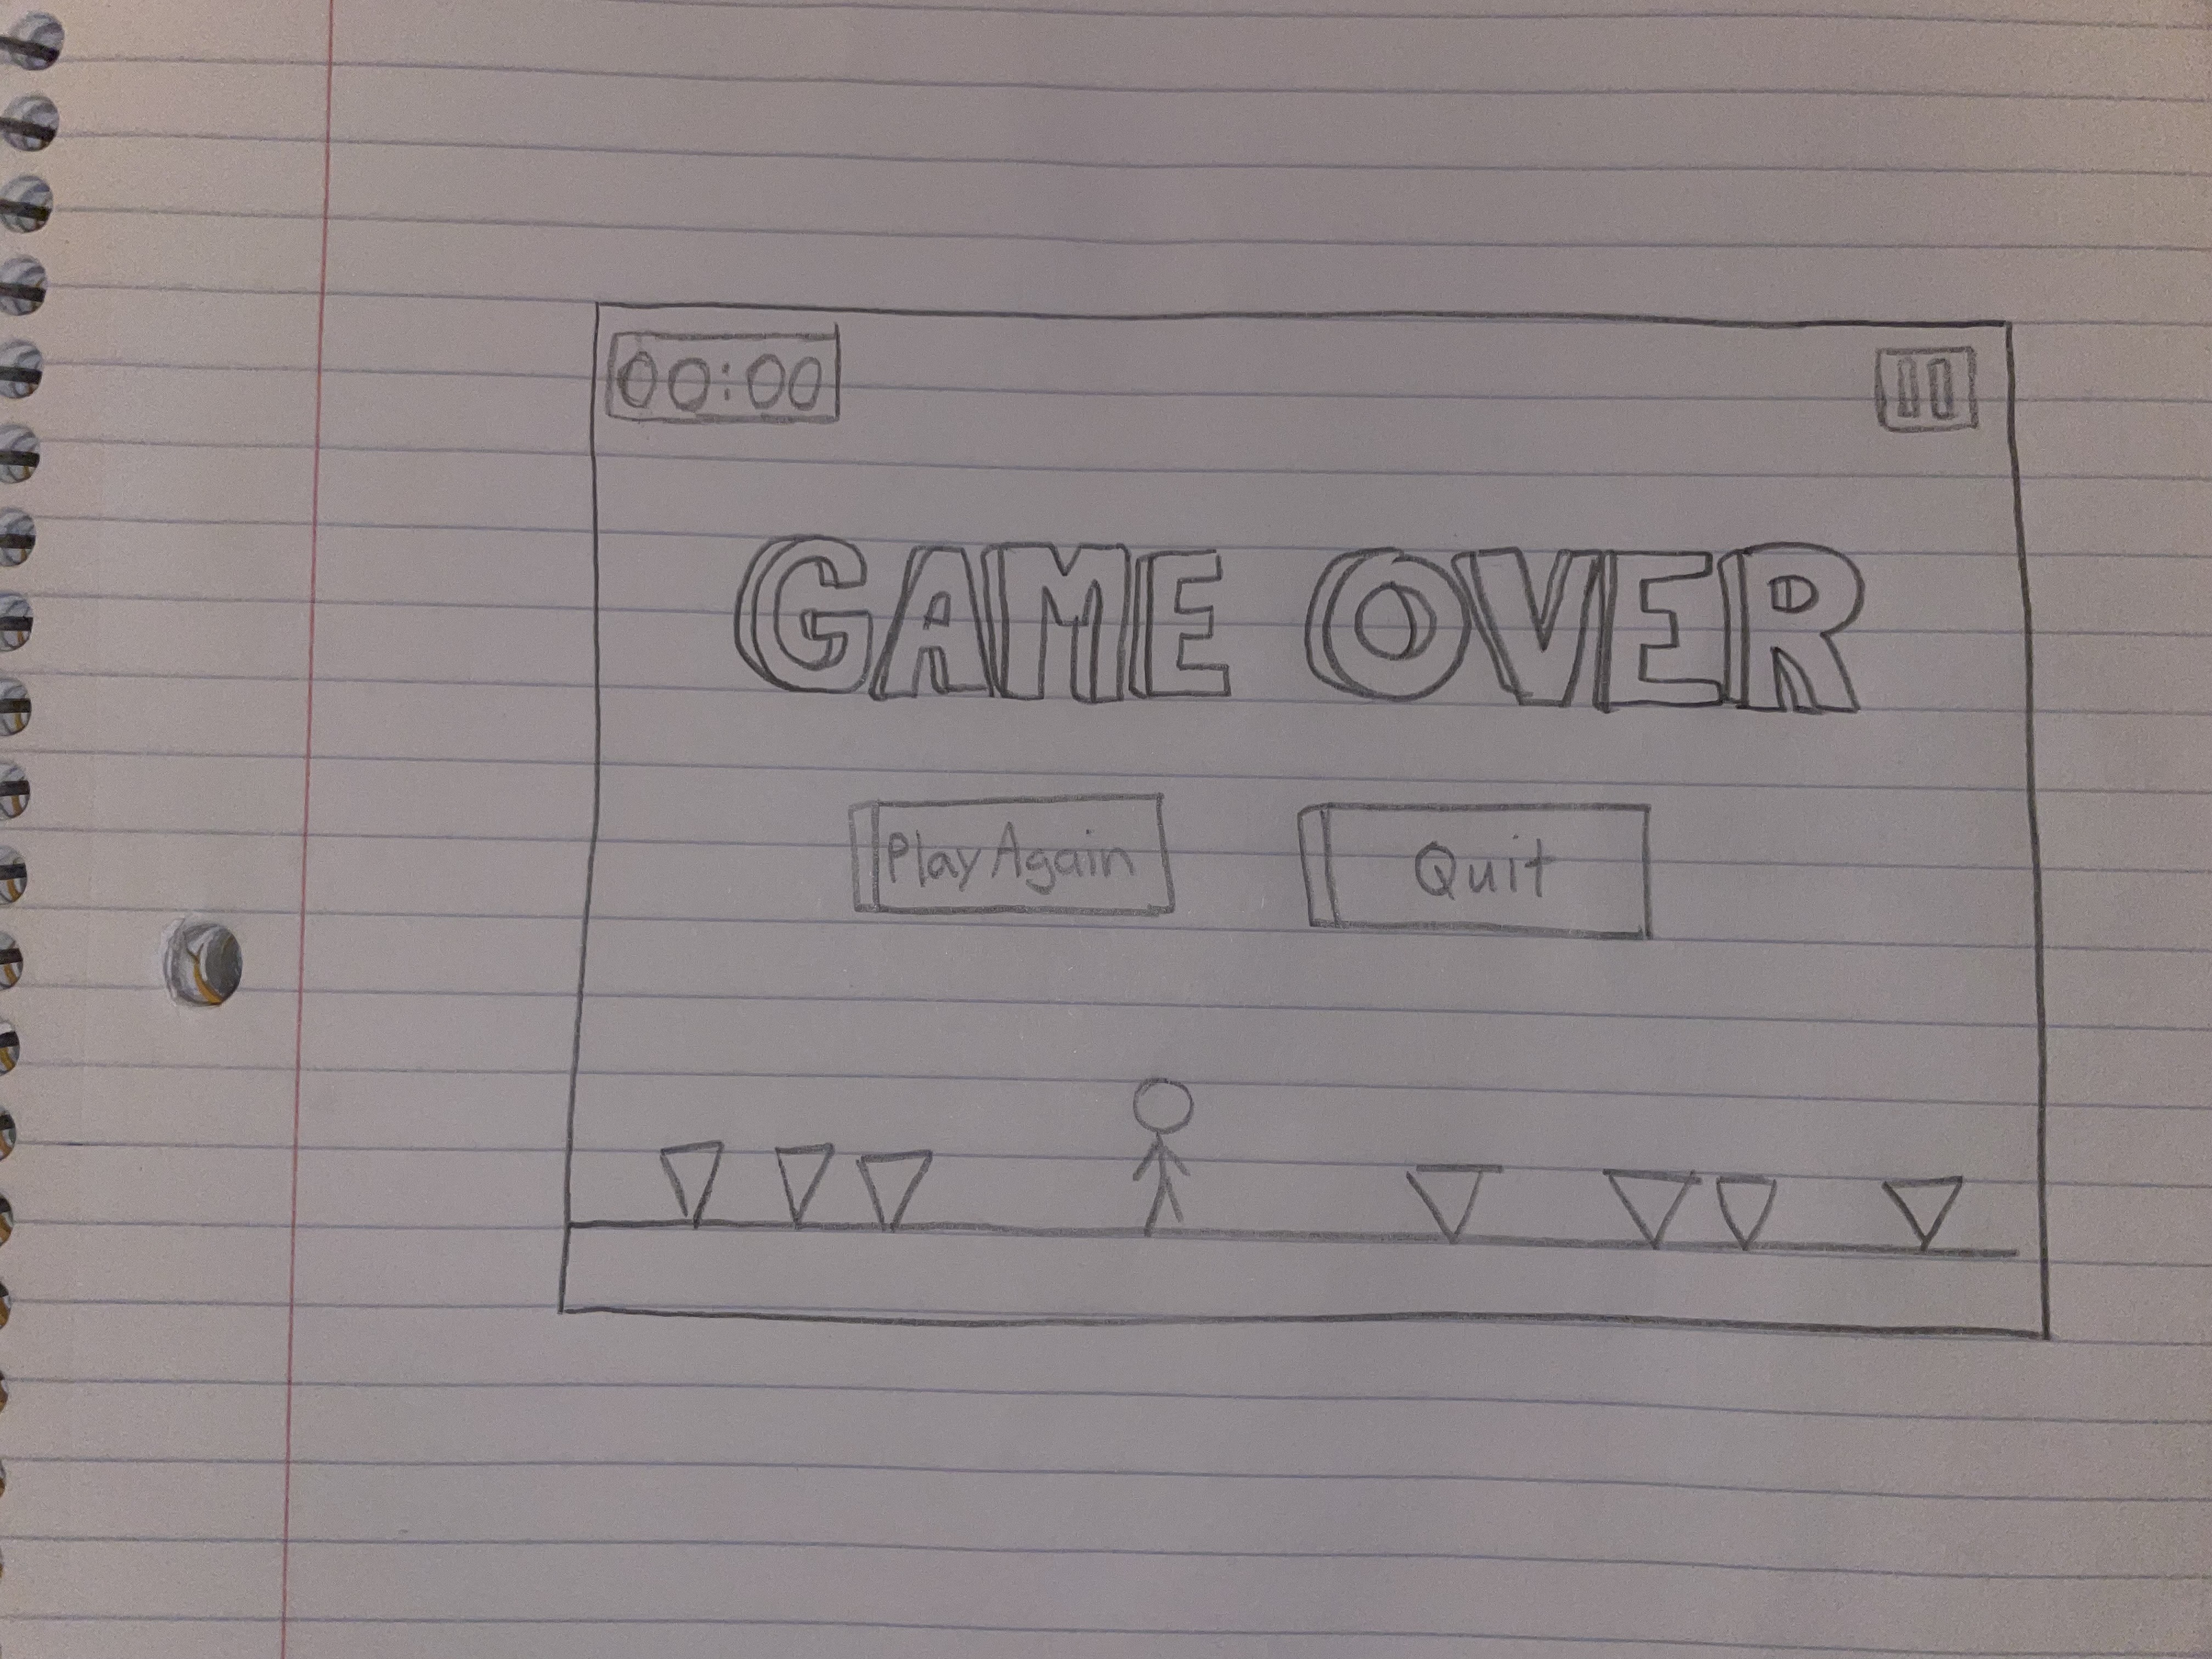 00:00
GAME OVER
Play Again
Quit